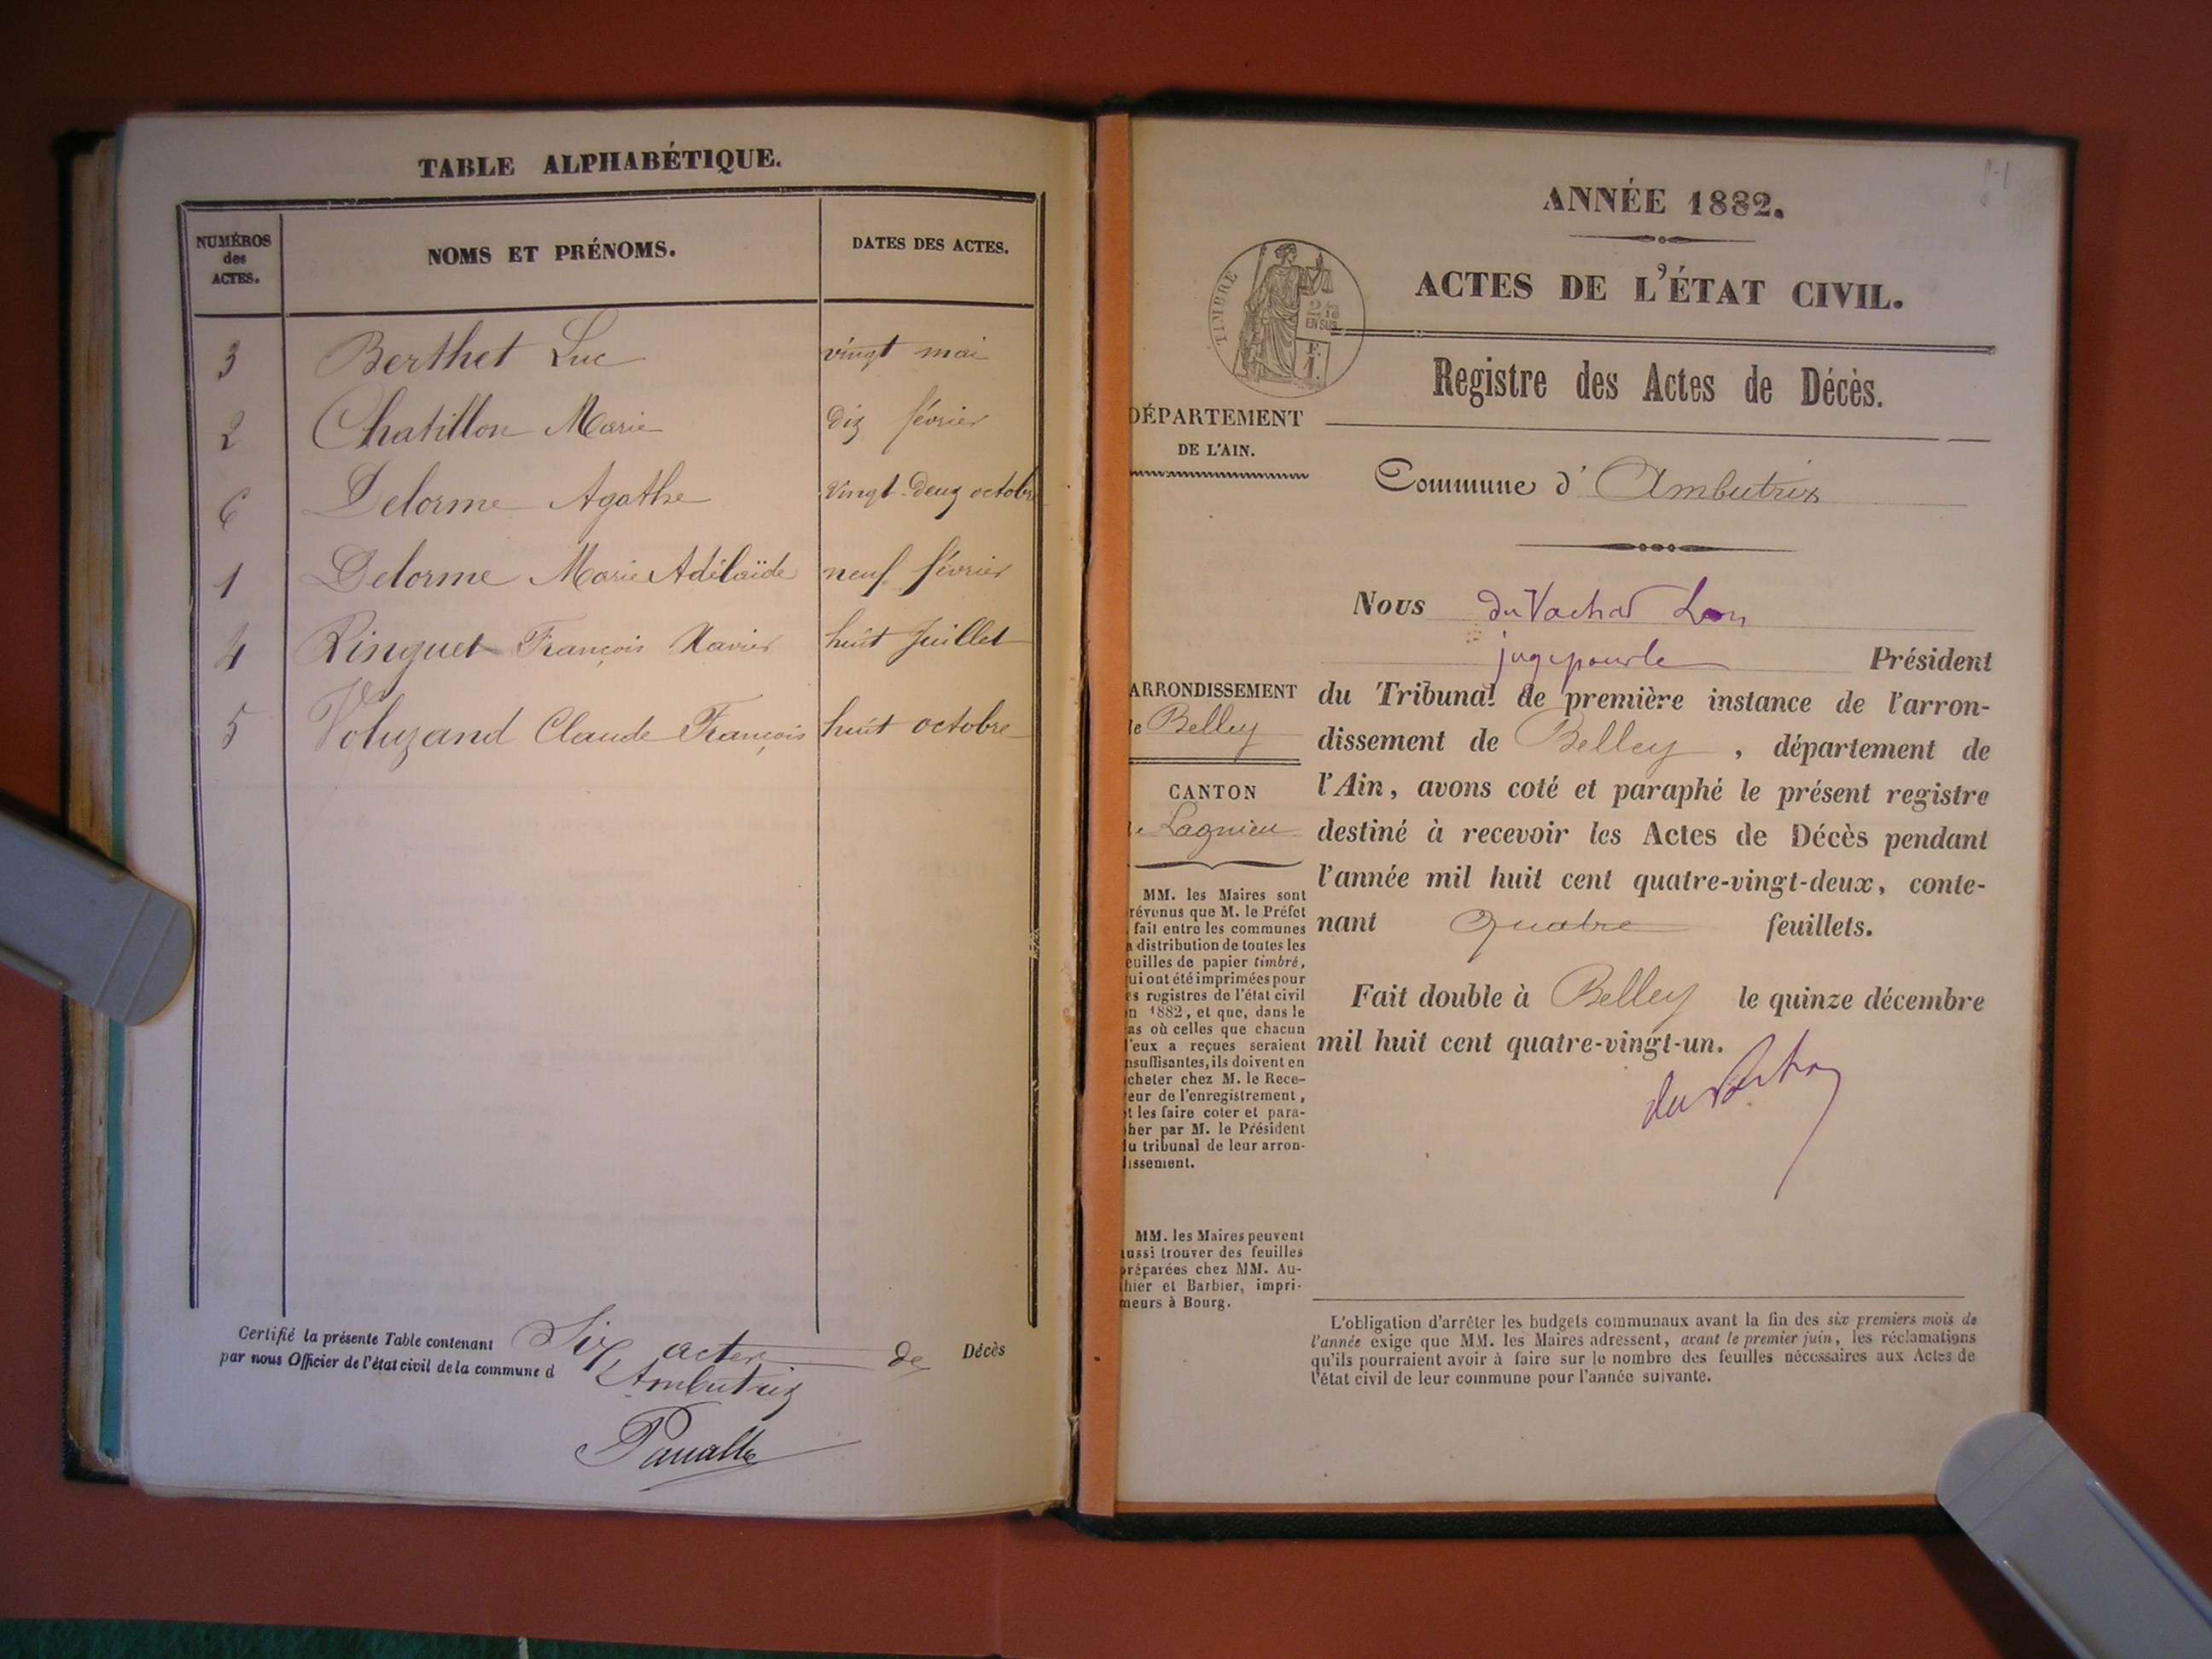 TABLE ALPHABÉTIQUE.
NUMÉROS
des
ACTES.
NOMS ET PRÉNOMS.
DATES DES ACTES.
3 Berthet Luc vingt mai
2 Chatillon Marie dix février
6 Delorme Agathe vingt-deux octobre
1 Delorme Marie Adélaïde neuf février
4 Ringuet François Xavier huit Juillet
5 Voluzand Claude François huit octobre
Certifié la présente Table contenant Six actes de Décès
par nous Officier de l'état civil de la commune d Ambutrix
ANNÉE 1882.
ACTES DE L'ÉTAT CIVIL.
TIMBRE
2/10
EN SUS
F.
1.
Registre des Actes de Décès.
DÉPARTEMENT
DE L'AIN.
Commune d' Ambutrix
Nous du Vachat Léon
juge pour le Président
ARRONDISSEMENT
de Belley
CANTON
de Lagnieu
du Tribunal de première instance de l'arron-
dissement de Belley, département de
l'Ain, avons coté et paraphé le présent registre
destiné à recevoir les Actes de Décès pendant
l'année mil huit cent quatre-vingt-deux, conte-
nant quatre feuillets.
Fait double à Belley le quinze décembre
mil huit cent quatre-vingt-un.
du Vachat
MM. les Maires sont
révenus que M. le Préfet
fait entre les communes
a distribution de toutes les
euilles de papier timbré,
ui ont été imprimées pour
es registres de l'état civil
n 1882, et que, dans le
as où celles que chacun
d'eux a reçues seraient
nsuffisantes, ils doivent en
cheter chez M. le Rece-
eur de l'enregistrement,
t les faire coter et para-
her par M. le Président
du tribunal de leur arron-
issement.
MM. les Maires peuvent
ussi trouver des feuilles
réparées chez MM. Au-
hier et Barbier, impri-
meurs à Bourg.
L'obligation d'arrêter les budgets communaux avant la fin des six premiers mois de
l'année exige que MM. les Maires adressent, avant le premier juin, les réclamations
qu'ils pourraient avoir à faire sur le nombre des feuilles nécessaires aux Actes de
l'état civil de leur commune pour l'année suivante.